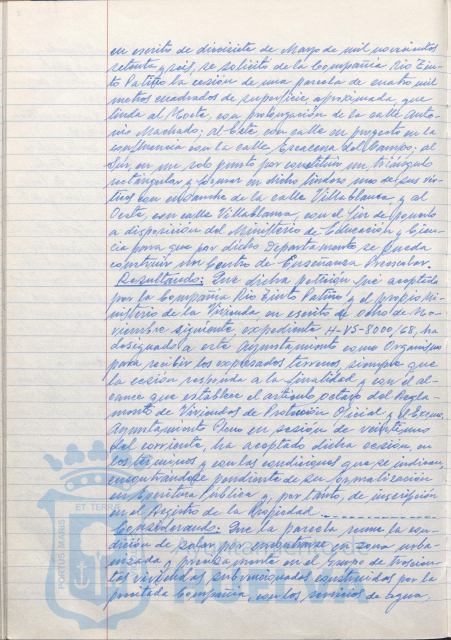 en escrito de diecisiete de Marzo de mil novecientos
setenta y seis, se solicitó de la Compañía Río Tin-
to Patiño la cesión de una parcela de cuatro mil
metros cuadrados de superficie, aproximada, que
linda al Norte, con prolongación de la calle Anto-
nio Machado; al Este, con calle en proyecto en la
confluencia con la calle Escacena del Campo; al
Sur, en un solo punto por constituir un triángulo
rectángulo y formar en dicho lindero uno de sus vér-
tices con ensanche de la calle Villablanca, y al
Oeste, con calle Villablanca, con el fin de ponerlo
a disposición del Ministerio de Educación y Cien-
cia para que por dicho Departamento, se pueda
construir un Centro de Enseñanza Preescolar.
Resultando: Que dicha petición fue aceptada
por la Compañía Río Tinto Patiño y el propio Mi-
nisterio de la Vivienda en escrito de ocho de No-
viembre siguiente, expediente H-VS-8000/68, ha
designado a este Ayuntamiento como Organismo
para recibir los expresados terrenos, siempre que
la cesión responda a la finalidad y con el al-
cance que establece el artículo octavo del Regla-
mento de Viviendas de Protección Oficial y el Excmo.
Ayuntamiento Pleno en sesión de veintiuno
del corriente, ha aceptado dicha cesión, en
los términos y con las condiciones que se indican,
encontrándose pendiente de su formalización
en Escritura Pública y, por tanto, de inscripción
en el Registro de la Propiedad.
Considerando: Que la parcela reune la con-
dición de solar por encontrarse en zona urba-
nizada y precisamente en el Grupo de Doscien-
tas viviendas subvencionadas construidas por la
precitada Compañía, con los servicios de agua,
PORTUS MARIS
ET TERRAE